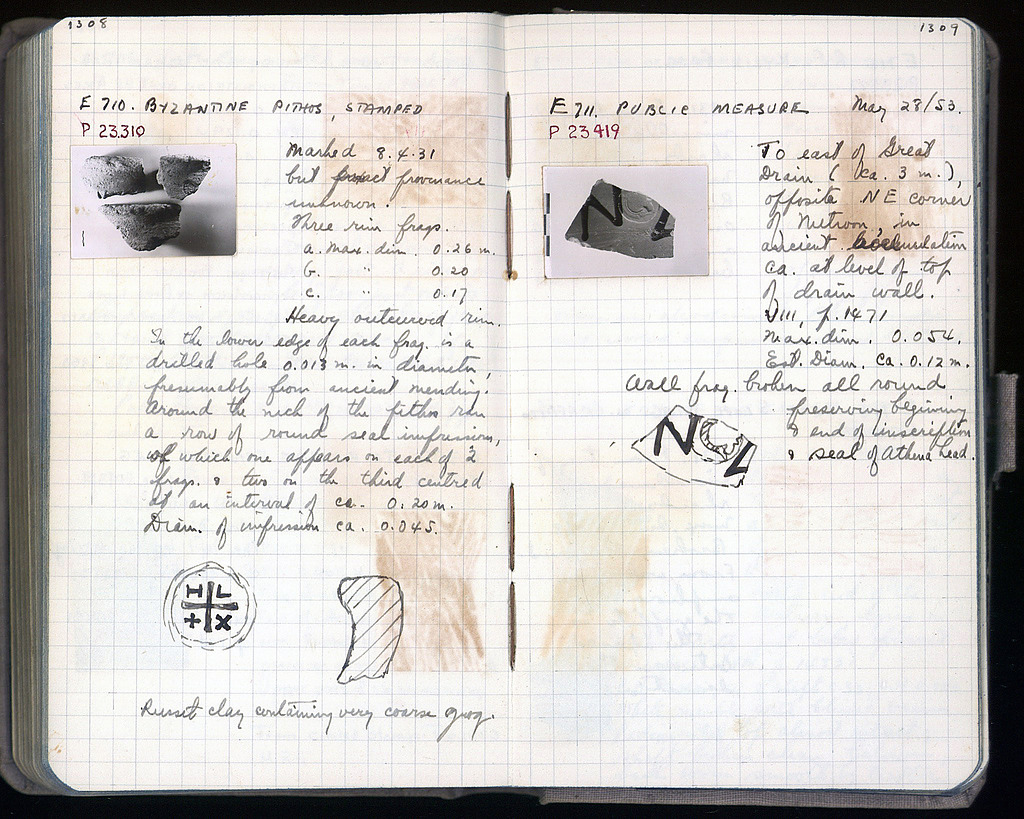 1308
E 710. BYZANTINE PITHOS, STAMPED
P 23310
Marked 8.4.31
but exact provenance
unknown.
Three rim frags.
a. max. dim. 0.26 m.
b. " 0.20
c. " 0.17
Heavy outcurved rim.
In the lower edge of each frag. is a
drilled hole 0.013 m. in diameter,
presumably from ancient mending.
Around the neck of the pithos ran
a row of round seal impressions,
of which one appears on each of 2
frags. & two on the third centred
at an interval of ca. 0.20 m.
Diam. of impression ca. 0.045.
H L
+ X
Russet clay containing very coarse grog.
1309
E 711. PUBLIC MEASURE May 28/53.
P 23419
To east of Great
Drain (ca. 3 m.),
opposite NE corner
of Metroon, in
ancient accumulation
ca. at level of top
of drain wall.
VIII, p. 1471
Max. dim. 0.054.
Est. Diam. ca. 0.12 m.
Wall frag. broken all round
preserving beginning
& end of inscription
& seal of Athena head.